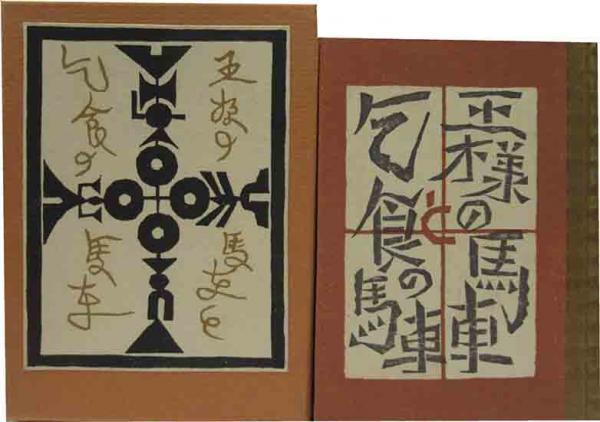 王様の馬車と
乞食の馬車
王様の馬車
と
乞食の馬車